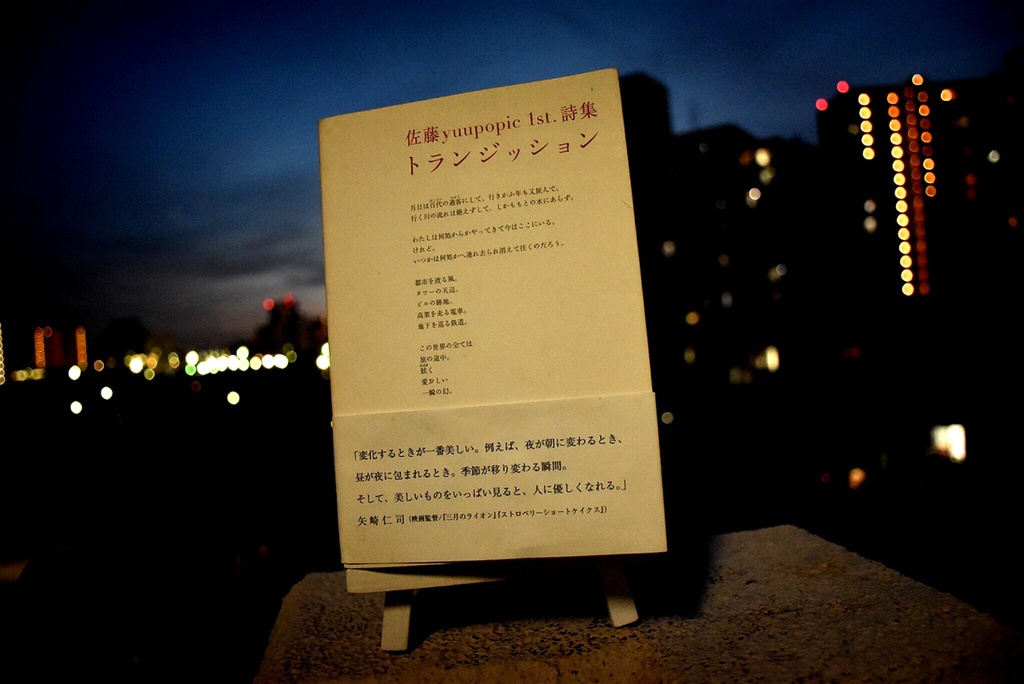 佐藤yuupopic 1st.詩集
トランジッション
月日は百代の過客にして、行きかふ年も又旅人で、
行く川の流れは絶えずして、しかももとの水にあらず。
わたしは何処からかやってきて今はここにいる。
けれど。
いつかは何処かへ連れ去られ消えて往くのだろう。
都市を渡る風。
タワーの天辺。
ビルの跡地。
高架を走る電車。
地下を巡る鉄道。
この世界の全ては
旅の途中。
眩く
愛おしい
一瞬の幻。
「変化するときが一番美しい。例えば、夜が朝に変わるとき、
昼が夜に包まれるとき。季節が移り変わる瞬間。
そして、美しいものをいっぱい見ると、人に優しくなれる。」
矢崎仁司(映画監督/『三月のライオン』『ストロベリーショートケイクス』)